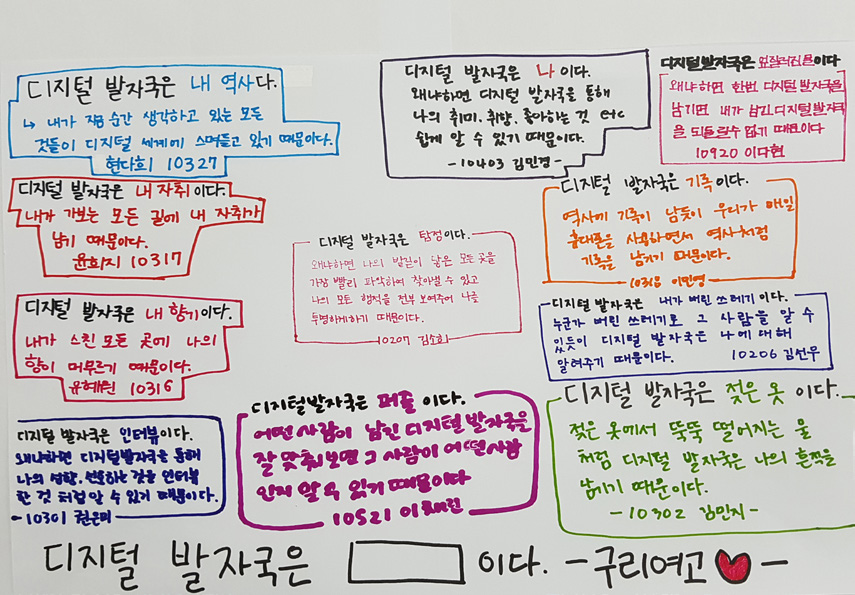 디지털 발자국은 내 역사다.
↳ 내가 지금 순간 생각하고 있는 모든
것들이 디지털 세계에 스며들고 있기 때문이다.
현다희 10327
디지털 발자국은 나 이다.
왜냐하면 디지털 발자국을 통해
나의 취미, 취향, 좋아하는 것 etc
쉽게 알 수 있기 때문이다.
-10403 김민경-
디지털발자국은 엎질러진물이다
왜냐하면 한번 디지털 발자국을
남기면 내가 남긴 디지털 발자국
을 되돌릴수 없기 때문이다
10920 이다현
디지털 발자국은 내 자취이다.
내가 가보는 모든 길에 내 자취가
남기 때문이다.
윤희지 10317
디지털 발자국은 탐정이다.
왜냐하면 나의 발길이 닿은 모든 곳을
가장 빨리 파악하여 찾아낼 수 있고
나의 모든 행적을 전부 보여주어 나를
투명하게하기 때문이다.
10207 김소희
디지털 발자국은 기록이다.
역사에 기록이 남듯이 우리가 매일
휴대폰을 사용하면서 역사처럼
기록을 남기기 때문이다.
이민영
디지털 발자국은 내 향기이다.
내가 스친 모든 곳에 나의
향이 머무르기 때문이다.
유혜원 10316
디지털 발자국은 내가 버린 쓰레기 이다.
누군가 버린 쓰레기로 그 사람을 알 수
있듯이 디지털 발자국은 나에 대해
알려주기 때문이다. 10206 김선우
디지털 발자국은 인터뷰이다.
왜냐하면 디지털발자국을 통해
나의 성향, 선호하는 것을 인터뷰
한 것 처럼 알 수 있기 때문이다.
-10301 권은미
디지털발자국은 퍼즐 이다.
어떤 사람이 남긴 디지털 발자국을
잘 맞춰보면 그 사람이 어떤사람
인지 알 수 있기 때문이다
10521 이채린
디지털 발자국은 젖은 옷 이다.
젖은 옷에서 뚝뚝 떨어지는 물
처럼 디지털 발자국은 나의 흔적을
남기기 때문이다.
-10302 김민지-
디지털 발자국은 이다. -구리여고 ♥-